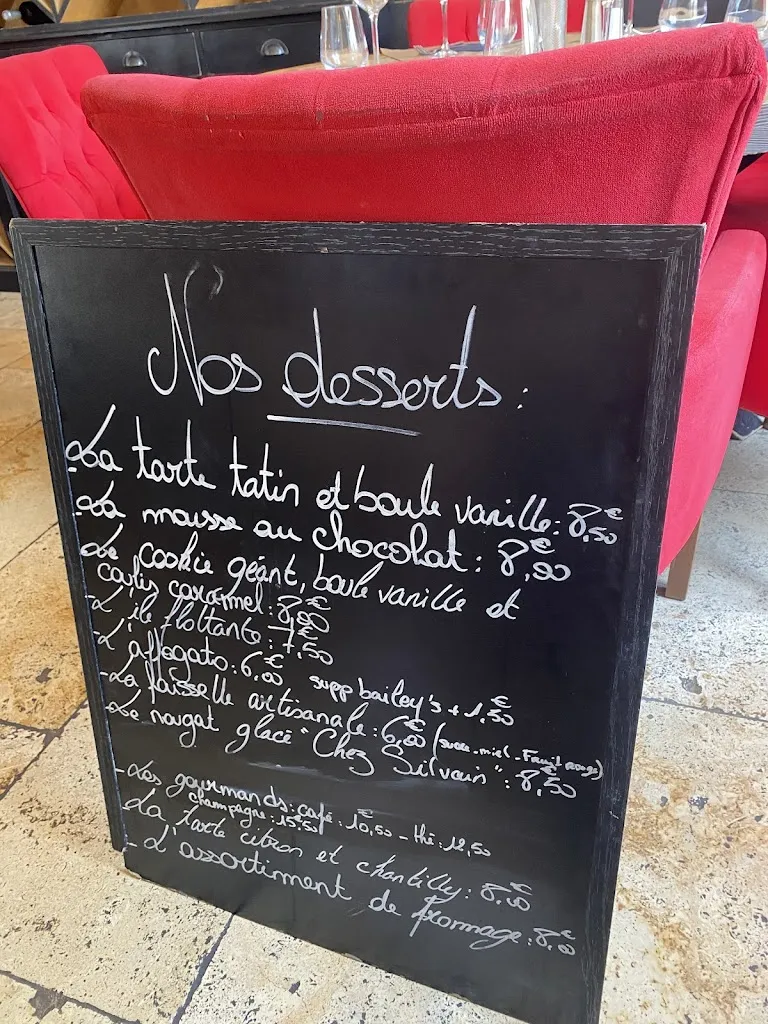 Nos desserts :
- La tarte tatin et boule vanille : 8,50€
- La mousse au chocolat : 8,00€
- Le cookie géant, boule vanille et
coulis caramel : 8,00€
- L'île flottante : 7,50€
- L'affogato : 6,00€ supp bailey's + 1,50€
- La faisselle artisanale : 6,00€ (sucre - miel - Fruit rouge)
- Le nougat glacé "Chez Silvain" : 8,50€
- Les gourmands : café : 10,50€ - thé : 12,50
champagne : 15,50
- La tarte citron et chantilly : 8,00€
- L'assortiment de fromage : 8,00€